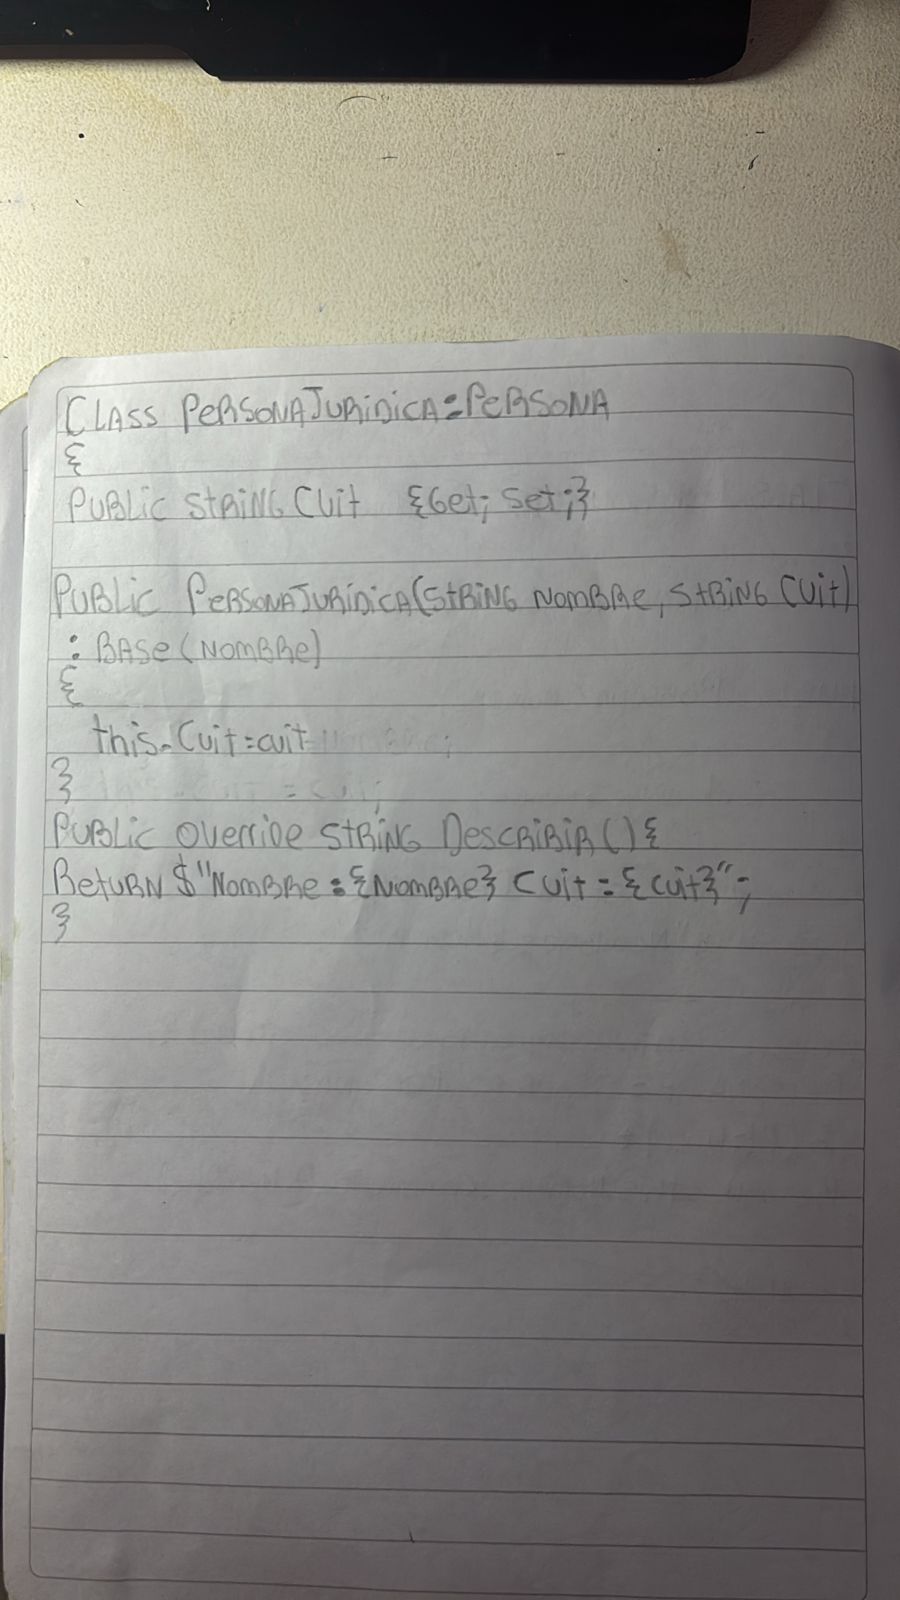 CLASS PERSONAJURiDiCA:PERSONA
{
PUBLiC STRiNG CUit {Get; Set;}
PUBLiC PERSONAJURiDiCA(STRiNG NOMBRe, STRiNG CUit)
: BASe(NOMBRe)
{
this.Cuit=cuit
}
PUBLiC OVerride STRiNG DesCRiBiR(){
ReTURN $"NOMBRe:{NOMBRe} CUit:{cuit}";
}